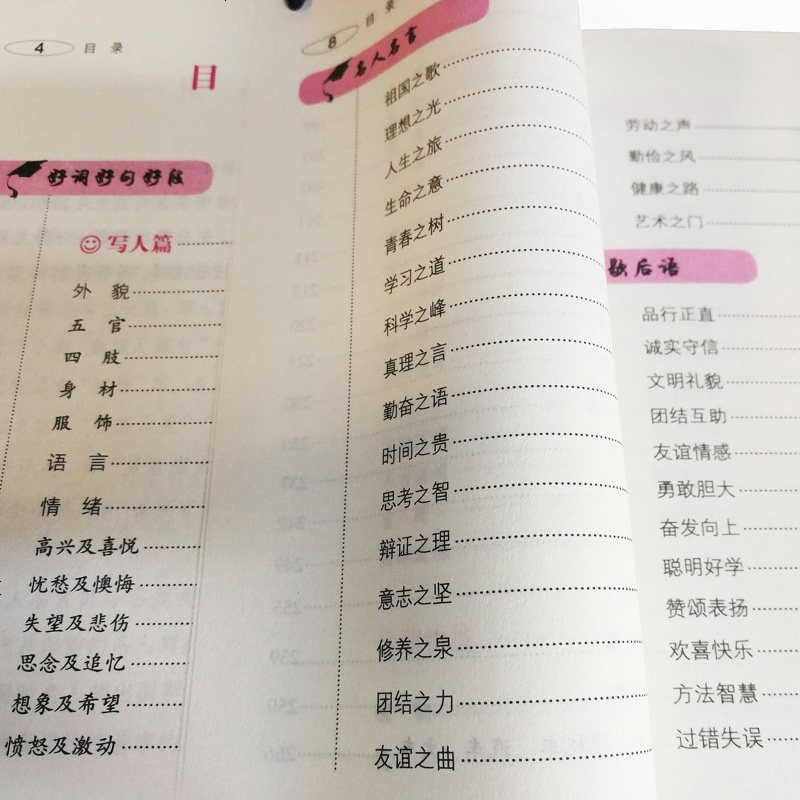 4 目录
目
好词好句好段
写人篇
外貌
五官
四肢
身材
服饰
语言
情绪
高兴及喜悦
忧愁及懊悔
失望及悲伤
思念及追忆
想象及希望
愤怒及激动
8 目录
名人名言
祖国之歌
理想之光
人生之旅
生命之意
青春之树
学习之道
科学之峰
真理之言
勤奋之语
时间之贵
思考之智
辩证之理
意志之坚
修养之泉
团结之力
友谊之曲
劳动之声
勤俭之风
健康之路
艺术之门
歇后语
品行正直
诚实守信
文明礼貌
团结互助
友谊情感
勇敢胆大
奋发向上
聪明好学
赞颂表扬
欢喜快乐
方法智慧
过错失误